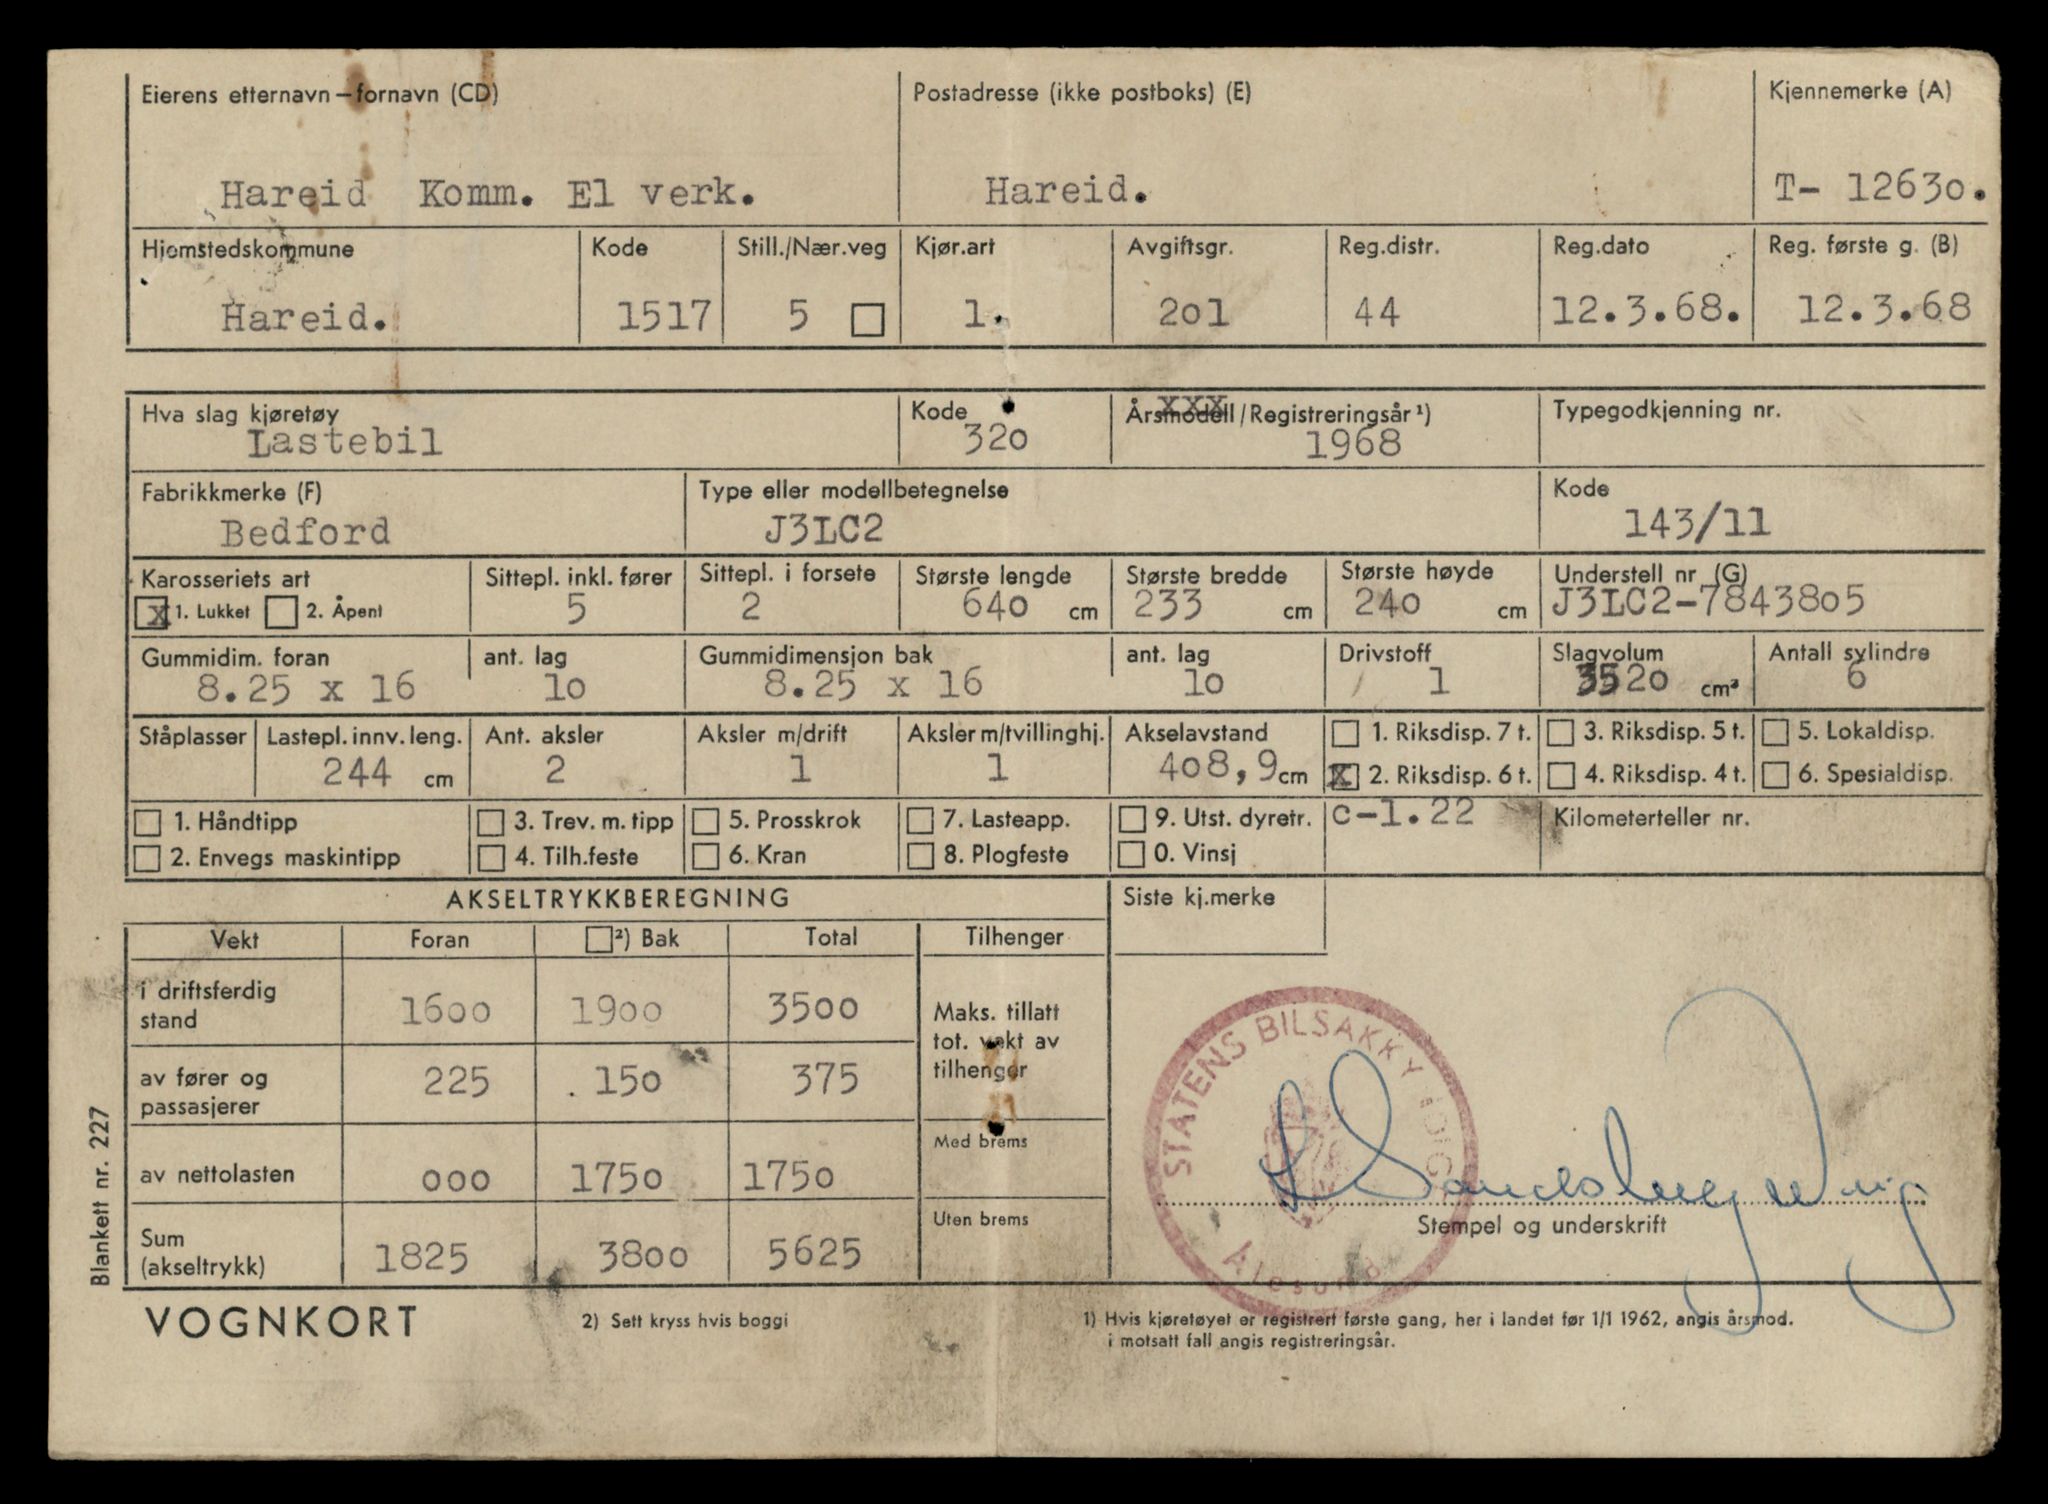 Eierens etternavn – fornavn (CD) Postadresse (ikke postboks) (E) Kjennemerke (A)
Hareid Komm. El verk. Hareid. T- 12630.
Hjemstedskommune Kode Still./Nær.veg Kjør.art Avgiftsgr. Reg.distr. Reg.dato Reg. første g. (B)
Hareid. 1517 5 1. 201 44 12.3.68. 12.3.68
Hva slag kjøretøy Kode Årsmodell/Registreringsår ¹) Typegodkjenning nr.
Lastebil 320 1968
Fabrikkmerke (F) Type eller modellbetegnelse Kode
Bedford J3LC2 143/11
Karosseriets art Sittepl. inkl. fører Sittepl. i forsete Største lengde Største bredde Største høyde Understell nr (G)
x 1. Lukket 2. Åpent 5 2 640 cm 233 cm 240 cm J3LC2-7843805
Gummidim. foran ant. lag Gummidimensjon bak ant. lag Drivstoff Slagvolum Antall sylindre
8.25 x 16 10 8.25 x 16 10 1 3520 cm³ 6
Ståplasser Lastepl. innv. leng. Ant. aksler Aksler m/drift Aksler m/tvillinghj. Akselavstand 1. Riksdisp. 7 t. 3. Riksdisp. 5 t. 5. Lokaldisp.
244 cm 2 1 1 408,9 cm x 2. Riksdisp. 6 t. 4. Riksdisp. 4 t. 6. Spesialdisp.
1. Håndtipp 3. Trev. m. tipp 5. Prosskrok 7. Lasteapp. 9. Utst. dyretr. C-1.22 Kilometerteller nr.
2. Envegs maskintipp 4. Tilh.feste 6. Kran 8. Plogfeste 0. Vinsj
AKSELTRYKKBEREGNING Siste kj.merke
Vekt Foran ²) Bak Total Tilhenger
i driftsferdig stand 1600 1900 3500 Maks. tillatt tot. vekt av tilhenger
av fører og passasjerer 225 150 375
Med brems
av nettolasten 000 1750 1750
Uten brems
Sum (akseltrykk) 1825 3800 5625
STATENS BILSAKKYNDIGE
Ålesund
Stempel og underskrift
Blankett nr. 227
VOGNKORT 2) Sett kryss hvis boggi 1) Hvis kjøretøyet er registrert første gang, her i landet før 1/1 1962, angis årsmod.
i motsatt fall angis registreringsår.